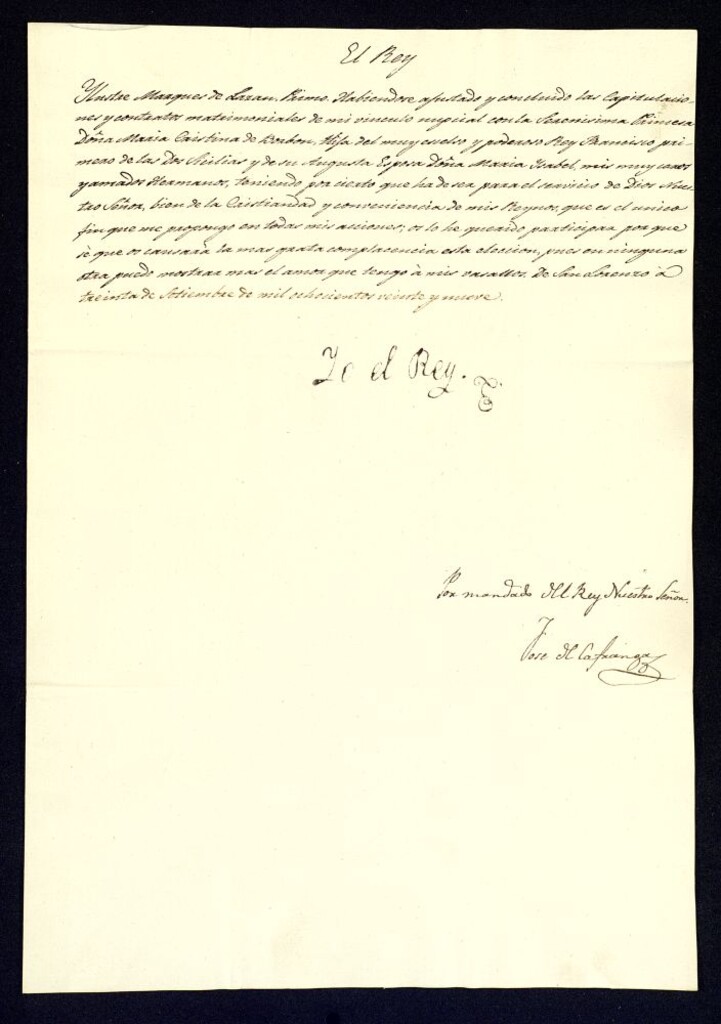 El Rey
Ylustre Marques de Lazan, Primo. Habiendose ajustado y concluido las Capitulacio-
nes y contratos matrimoniales de mi vinculo nupcial con la Serenisima Princesa
Doña Maria Cristina de Borbon, Hija del muy excelso y poderoso Rey Francisco pri-
mero de las Dos Sicilias y de su Augusta Esposa Doña Maria Isabel, mis muy caros
y amados Hermanos, teniendo por cierto que ha de ser para el servicio de Dios Nues-
tro Señor, bien de la Cristiandad y conveniencia de mis Reynos, que es el unico
fin que me propongo en todas mis acciones; os lo he querido participar por que
sé que os causará la mas grata complacencia esta eleccion, pues en ninguna
otra puedo mostrar mas el amor que tengo à mis vasallos. De San Lorenzo à
treinta de Setiembre de mil ochocientos veinte y nueve.
Yo el Rey.
Por mandado del Rey Nuestro Señor.
Jose de Cafranga